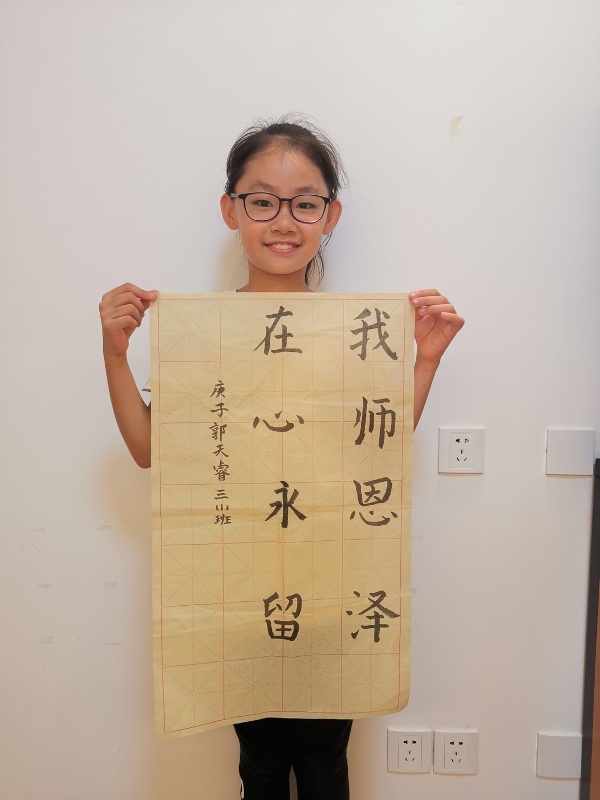 我师恩泽
在心永留
庚子郭天睿三小班